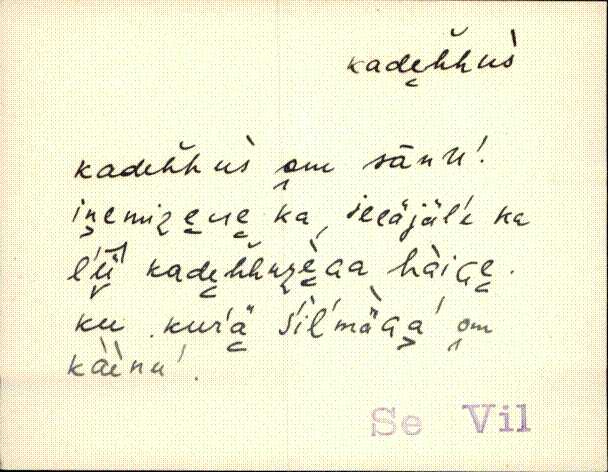 kade̮h̆hus̀
kadeh̆hus̀ o̭m sānu'.
in̬emize̮ne̮ ka, ieläjäl'e ka
l'ü̬ kade̮h̆huzè̮ɢa hàiɢe̮.
ku kur'ä̮ s'il'màɢa̬' o̭m
kàènu'.
Se Vil